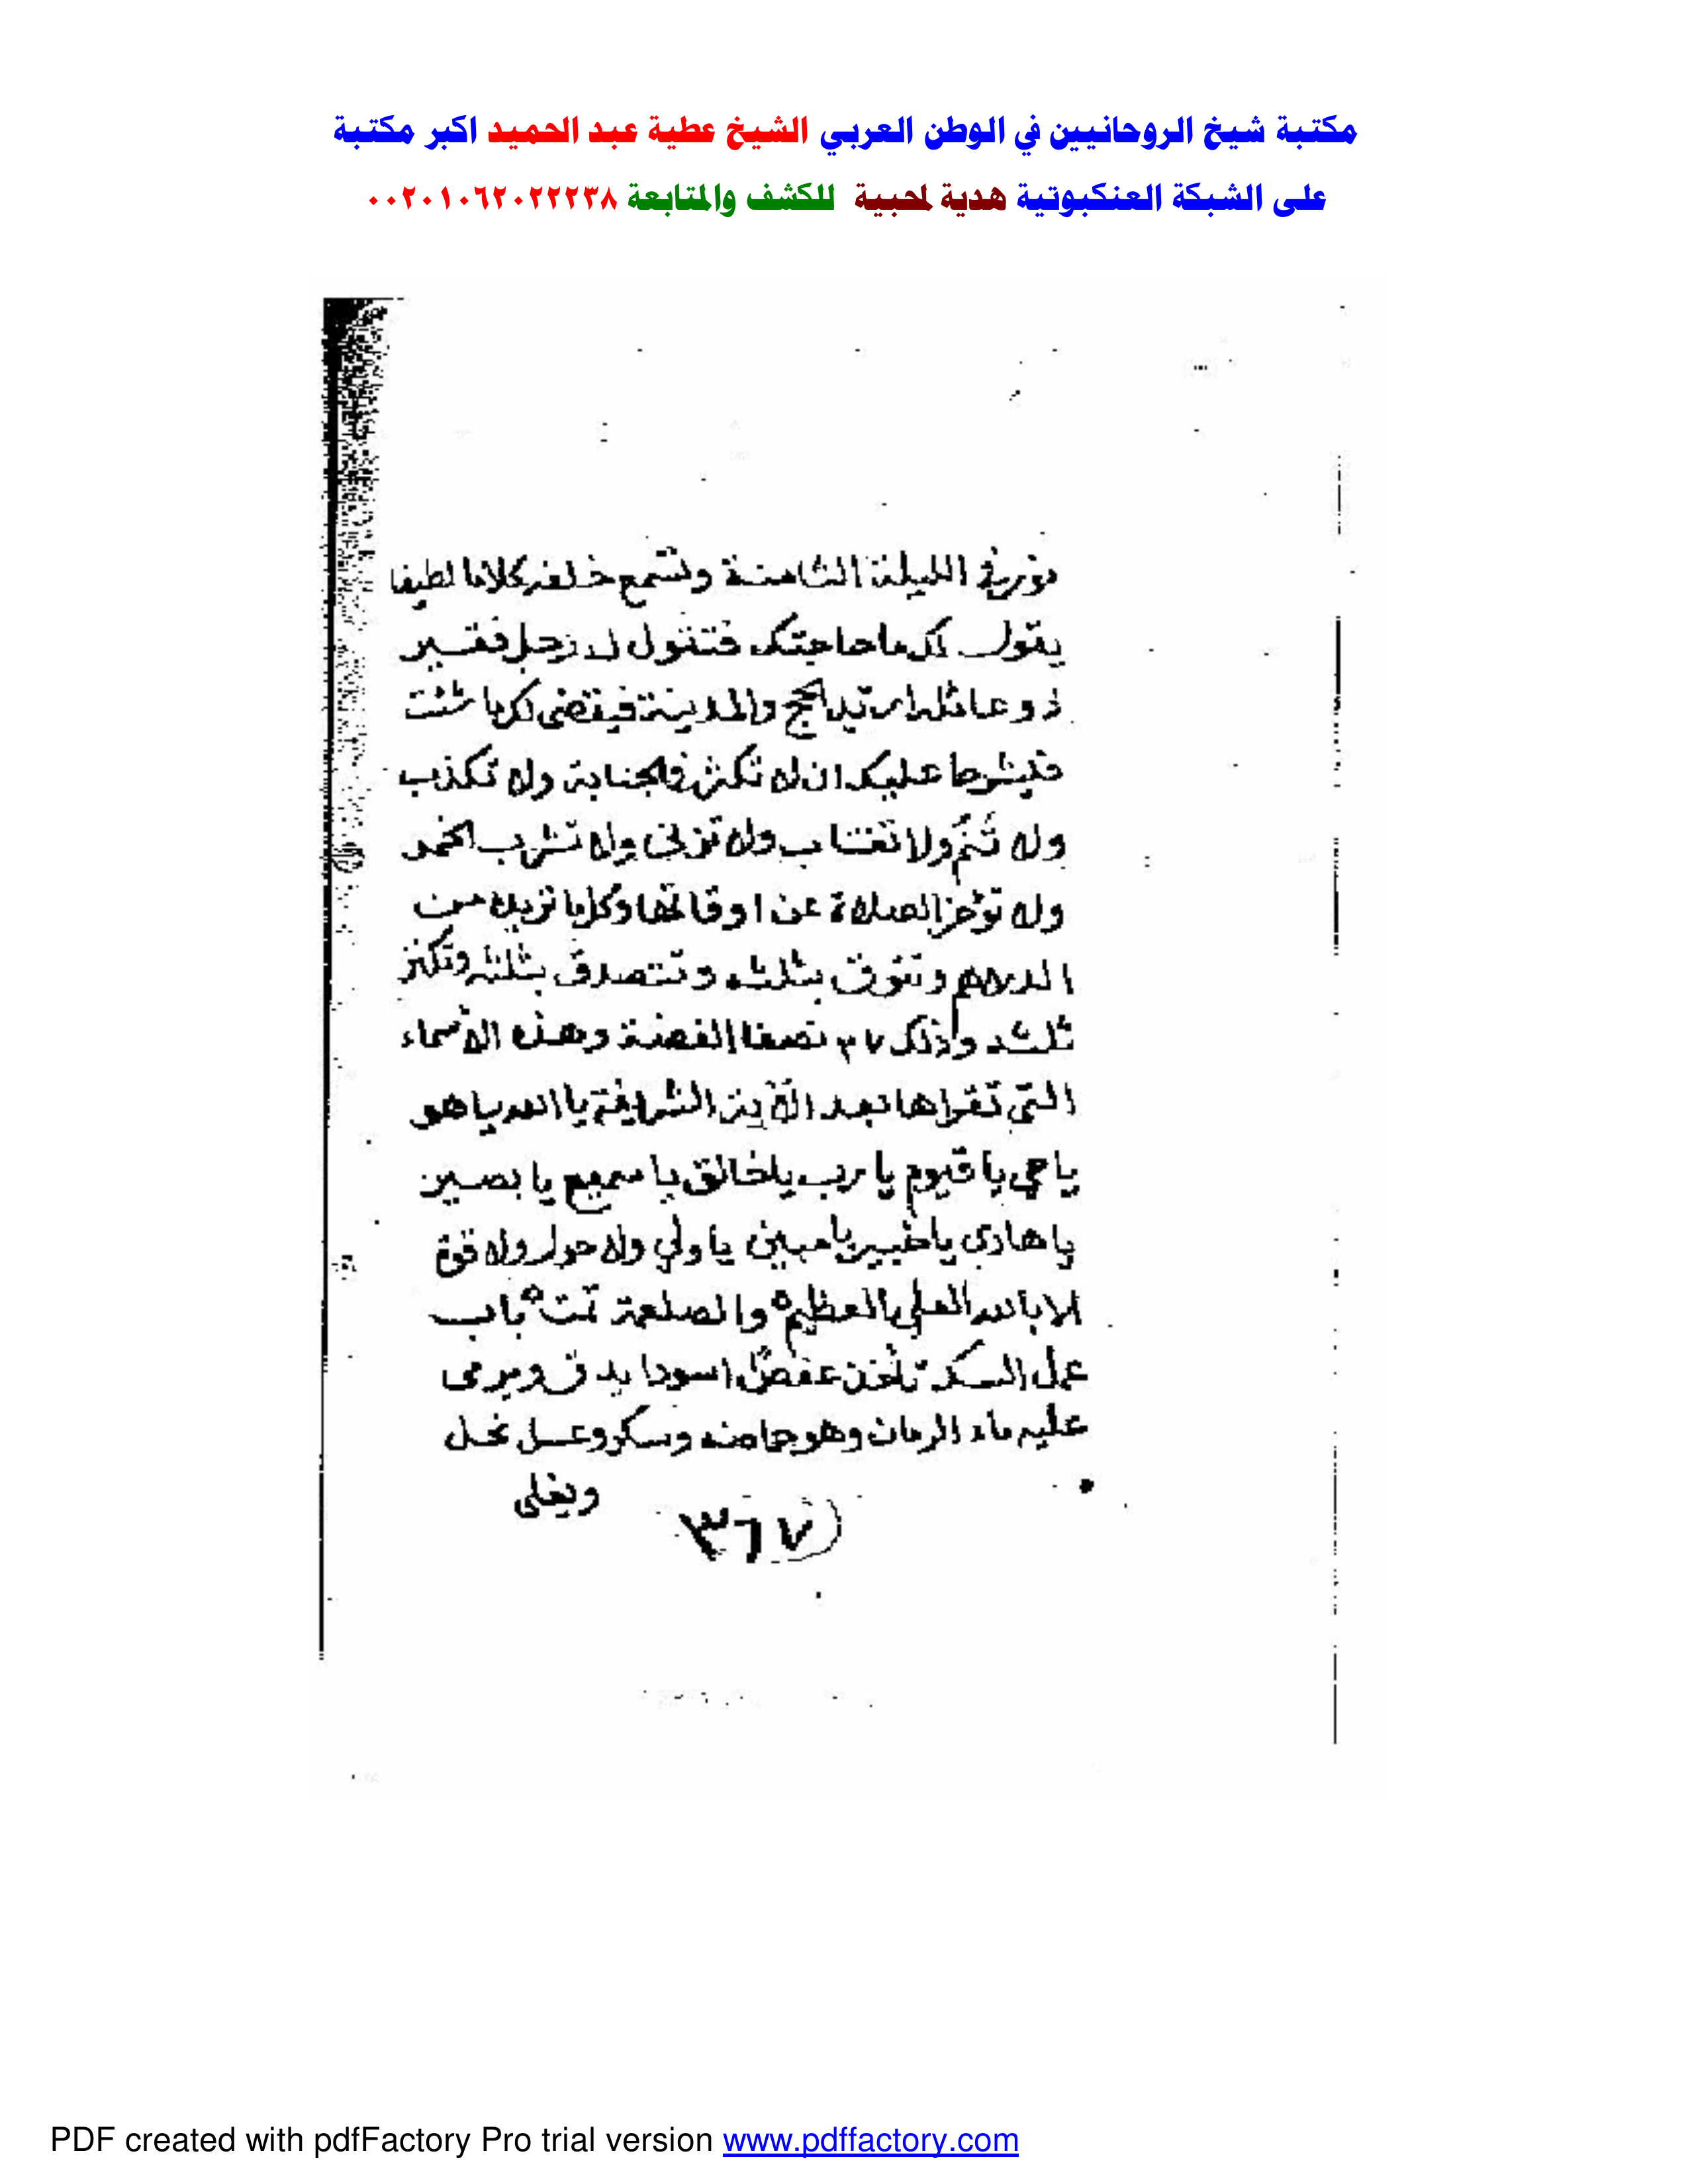 مكتبة شيخ الروحانيين في الوطن العربي الشيخ عطية عبد الحميد اكبر مكتبة
على الشبكة العنكبوتية هدية لمحبية للكشف والمتابعة ٠٠٢٠١٠٦٢٠٢٢٢٣٨
في الليلة الثامنة وتسمع خلفه كلاما لطيفا
يقول لك ما حاجتك فتقول له رجل فقير
ذو عائلة اريد الحج والمدينة فيقضى لك ما شئت
فيشرط عليك ان لا تكثر في الجنابة ولا تكذب
ولا تنم ولا تغتاب ولا تزنى ولا تشرب الخمر
ولا تؤخر الصلاة عن اوقاتها وكل ما تريده من
الدرهم وتنوق بثلثه وتتصدق بثلثه وتكنز
ثلثه وذلك ٣٧ نصفا الفضة وهذه الأسماء
التى تقراها بعد الآية الشريفة يا الله يا هو
يا حي يا قيوم يا رب يا خالق يا سميع يا بصير
يا هادى يا خبير يا مبين يا ولي ولا حول ولا قوة
الا بالله العلي العظيم ٥ والصلعة تمت ٥ باب
عمل السكر تأخذ عفصا اسودا يدق ويرمى
عليه ماء الرمان وهو حامضه وسكر وعسل نحل
ويغلى
٣٦٧
PDF created with pdfFactory Pro trial version www.pdffactory.com